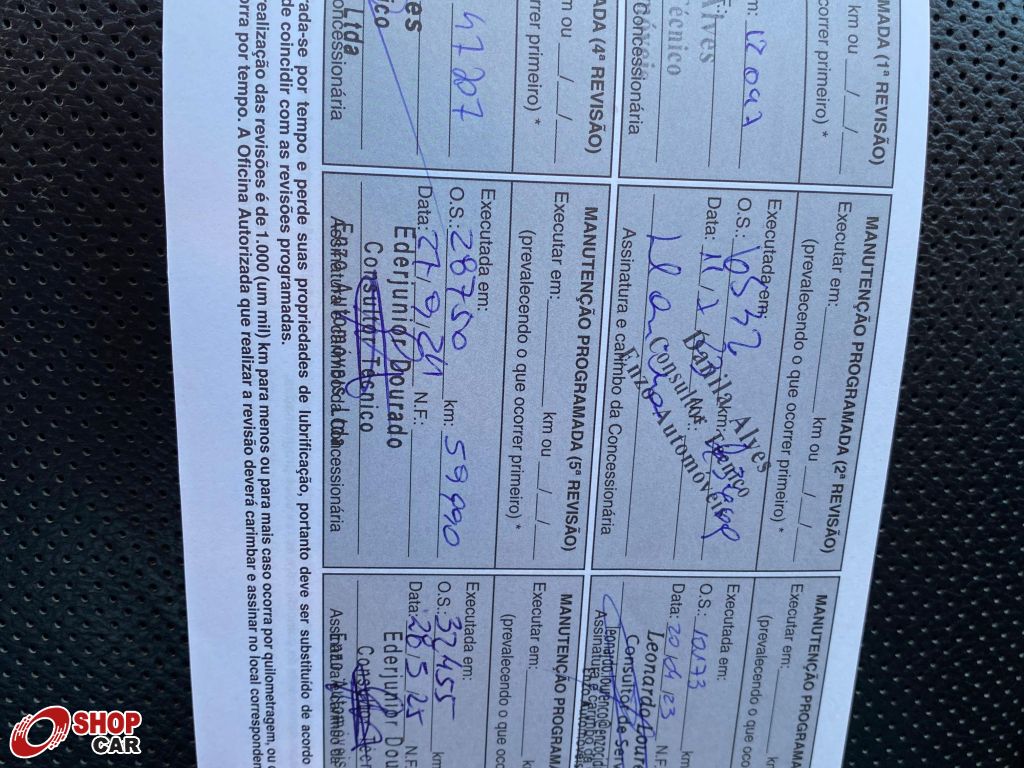 MADA (1ª REVISÃO)
km ou ___/___/___
correr primeiro) *
m: 12 097
Alves
Técnico
Concessionária
MANUTENÇÃO PROGRAMADA (2ª REVISÃO)
Executar em: ______ km ou ___/___/___
(prevalecendo o que ocorrer primeiro) *
Executada em:
O.S.:
Data: km:
Danila Alves
Consultor Técnico
Enzo Automóveis
Assinatura e carimbo da Concessionária
MANUTENÇÃO PROGRAMA
Executar em:
(prevalecendo o que oco
Executada em:
O.S.: 10173
Data: 20/04/23 N.F.
km:
Leonardo Loure
Consultor de Serv
Assinatura e
MADA (4ª REVISÃO)
m ou ___/___/___
orrer primeiro) *
47207
es
ico
Ltda
oncessionária
MANUTENÇÃO PROGRAMADA (5ª REVISÃO)
Executar em: ______ km ou ___/___/___
(prevalecendo o que ocorrer primeiro) *
Executada em:
O.S.: 28750 km: 59990
Data: 27/9/24 N.F.:
Ederjunior Dourado
Consultor Técnico
Enzo Automóveis Ltda
Assinatura e carimbo da Concessionária
MANUTENÇÃO PROGRAMA
Executar em:
(prevalecendo o que oco
Executada em:
O.S.: 32455 km:
Data: 28.5.25 N.F.
Ederjunior Dou
rada-se por tempo e perde suas propriedades de lubrificação, portanto deve ser substituído de acordo
de coincidir com as revisões programadas.
realização das revisões é de 1.000 (um mil) km para menos ou para mais caso ocorra por quilometragem, ou
orra por tempo. A Oficina Autorizada que realizar a revisão deverá carimbar e assinar no local corresponden
SHOP
CAR